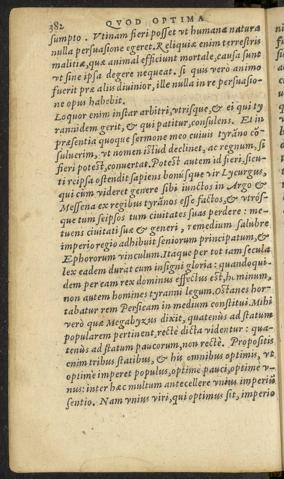 382 QVOD OPTIMA
sumpto . Vtinam fieri posset vt humana natura
nulla persuasione egeret. Reliquiæ enim terrestris
malitiæ, quæ animal efficiunt mortale, causa sunt
vt sine ipsa degere nequeat. Si quis verò animo
fuerit præ aliis diuinior, ille nulla in re persuasio-
ne opus habebit.
Loquor enim instar arbitri, vtrisque, & ei qui ty
rannidem gerit, & qui patitur, consulens. Et in
præsentia quoque sermone meo cuiuis tyrāno cō-
suluerim, vt nomen istud declinet, ac regnum, si
fieri potest, conuertat. Potest autem id fieri, sicu-
ti reipsa ostendit sapiens bonusque vir Lycurgus,
qui cùm videret genere sibi iunctos in Argo &
Messena ex regibus tyrānos esse factos, & vtros-
que tum seipsos tum ciuitates suas perdere : me-
tuens ciuitati suæ & generi , remedium salubre
imperio regio adhibuit seniorum principatum, &
Ephororum vinculum. Itaque per tot iam secula
lex eadem durat cum insigni gloria : quandoqui-
dem per eam rex dominus effectus est, hominum,
non autem homines tyranni legum. Ostanes hor-
tabatur rem Persicam in medium constitui. Mihi
verò quæ Megabyzus dixit, quatenùs ad statum
popularem pertinent, rectè dicta videntur : qua-
tenùs ad statum paucorum, non rectè. Propositis
enim tribus statibus, & his omnibus optimis, vt
optimè imperet populus, optimè pauci, optimè v-
nus: inter hæc multum antecellere vnius imperiū
sentio. Nam vnius viri, qui optimus sit, imperio